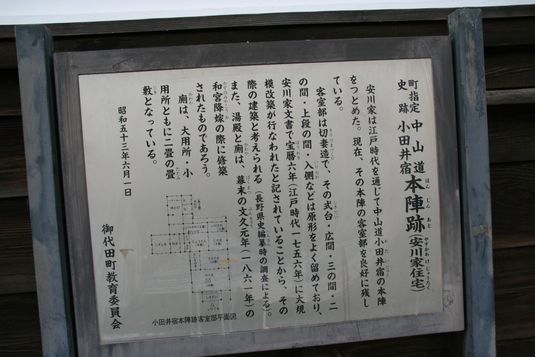 町指定 中山道
史跡 小田井宿 本陣跡(安川家住宅)
ほんじんあと
やすかわけじゅうたく
安川家は江戸時代を通じて中山道小田井宿の本陣
をつとめた。現在、その本陣の客室部を良好に残し
ている。
客室部は切妻造で、その式台・広間・三の間・二
の間・上段の間・入側などは原形をよく留めており、
安川家文書で宝暦六年(江戸時代一七五六年)に大規
模改築が行なわれたと記されていることから、その
際の建築と考えられる(長野県史編纂時の調査による)。
また、湯殿と廁は、幕末の文久元年(一八六一年)の
和宮降嫁の際に修築
されたものであろう。
廁は、大用所・小
用所ともに二畳の畳
敷となっている。
昭和五十三年六月一日
御代田町教育委員会
小田井宿本陣跡客室部平面図